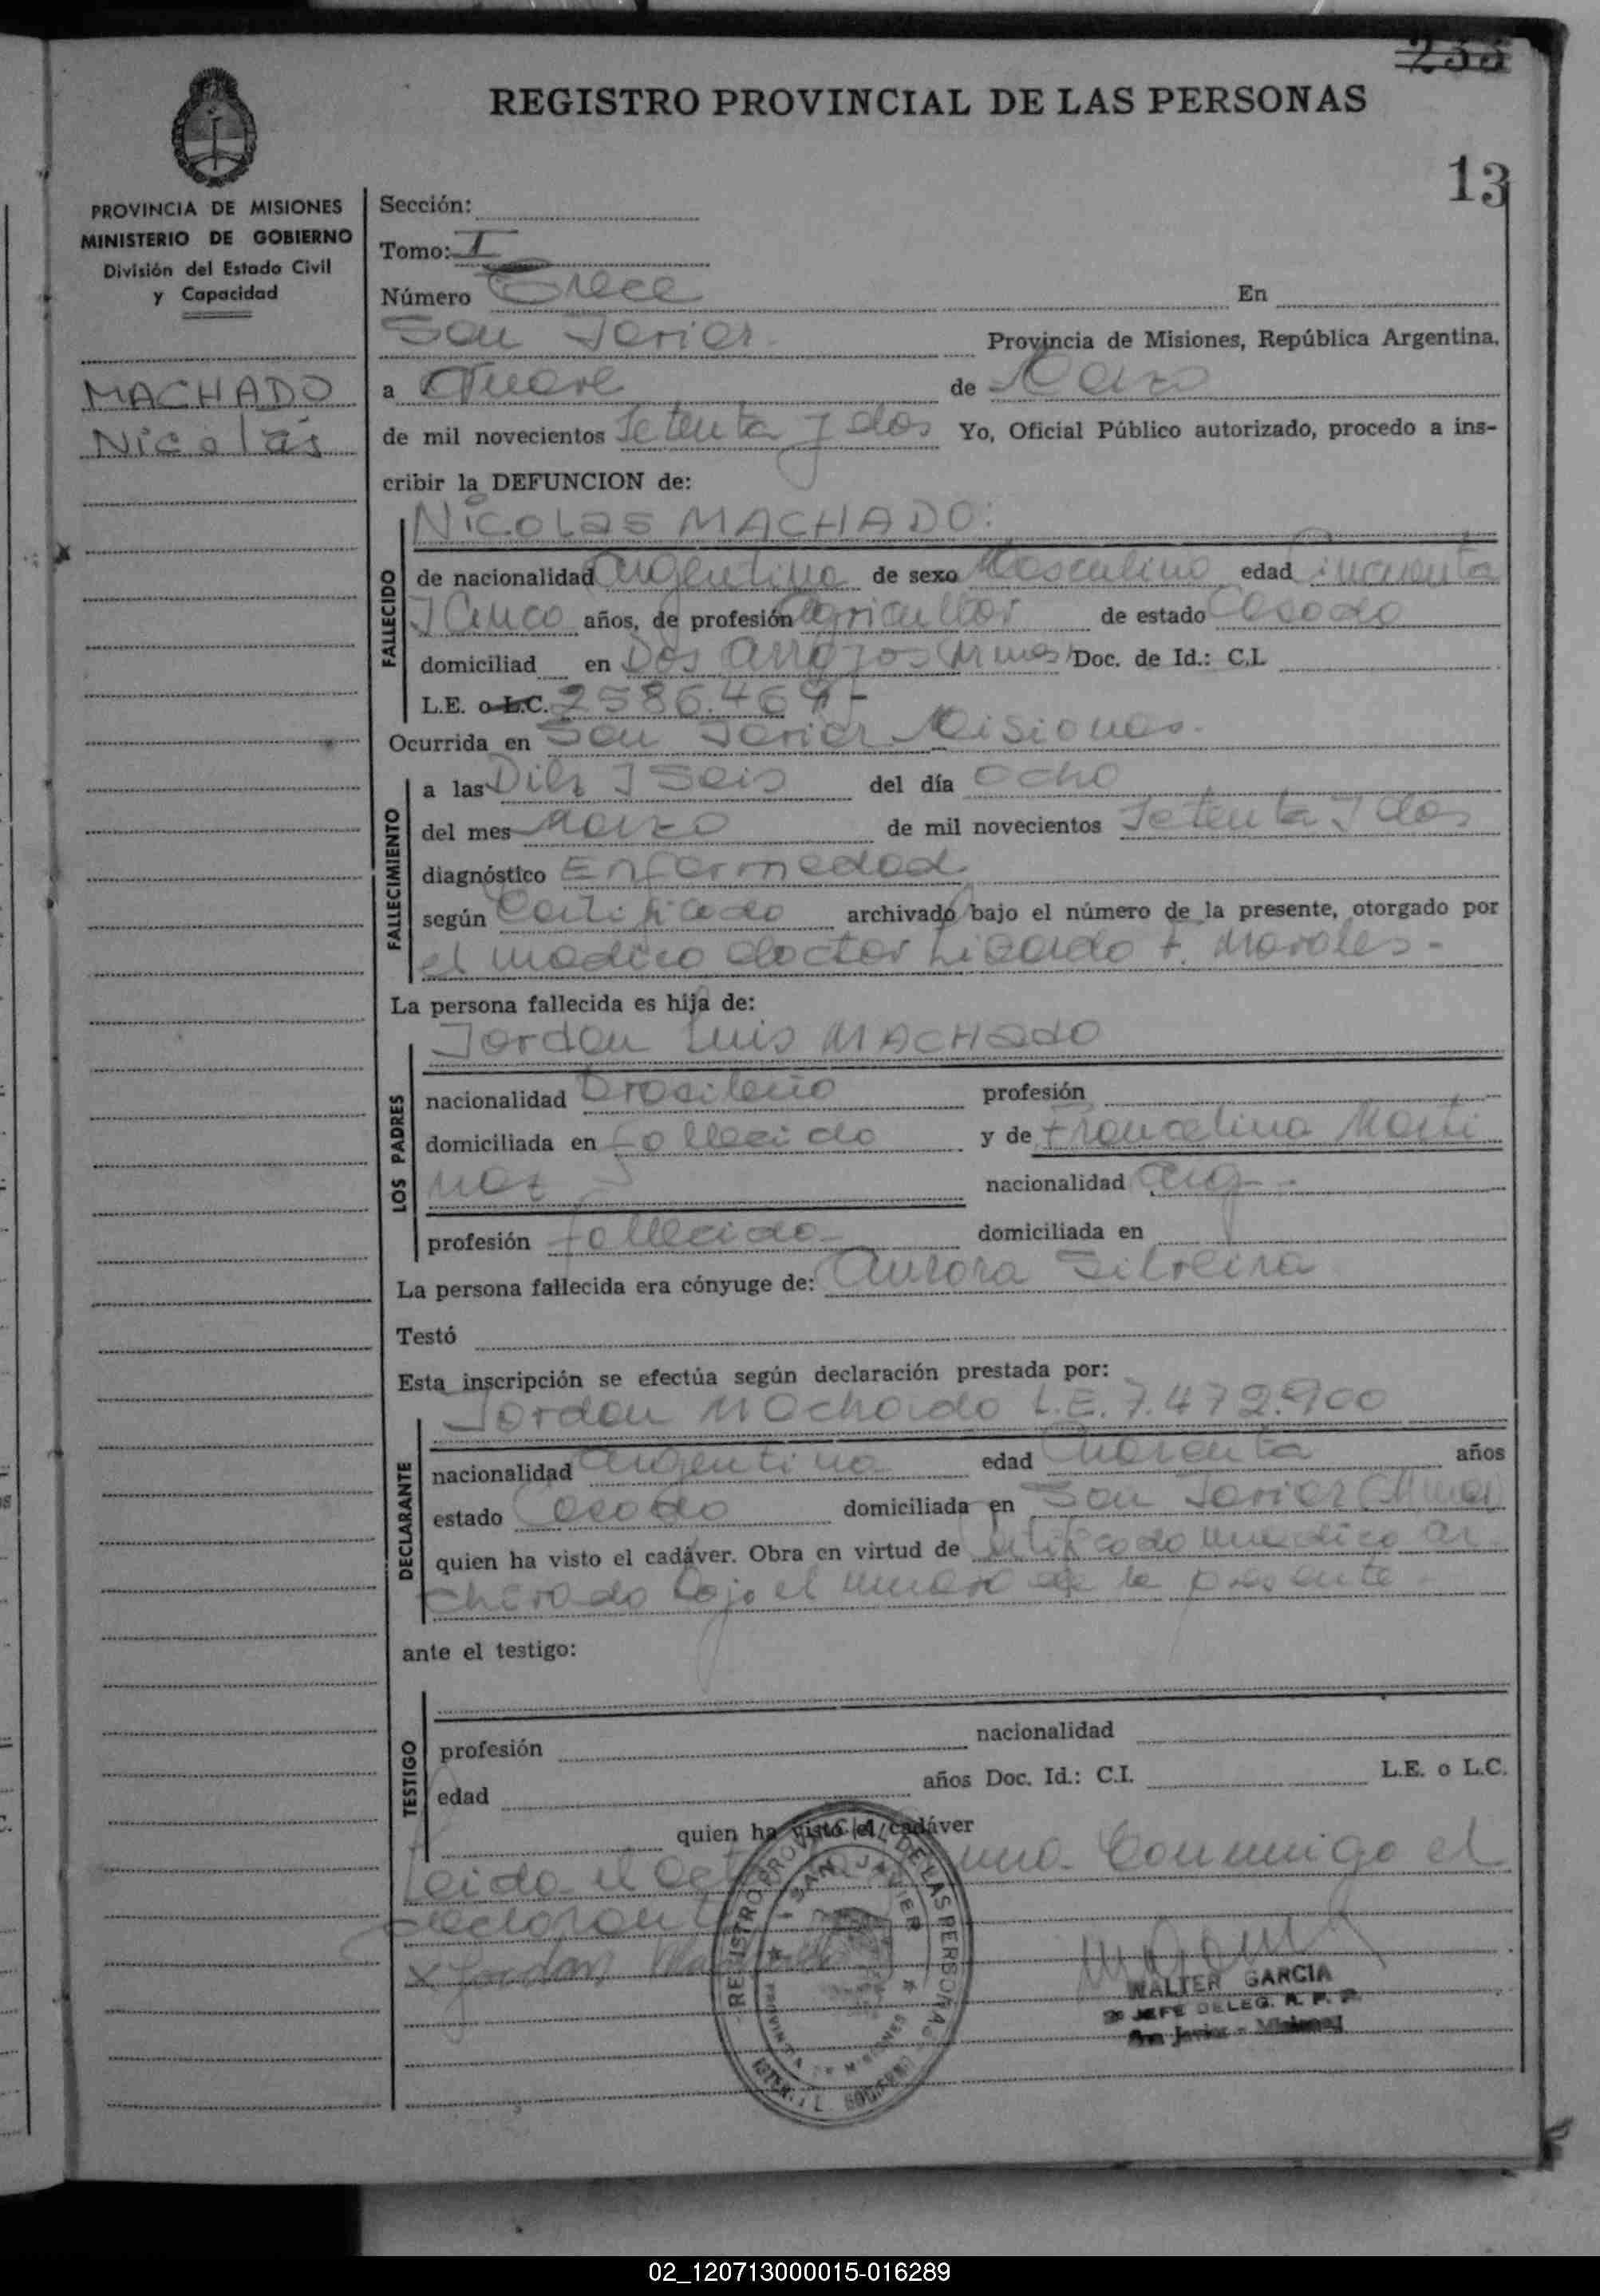 233
REGISTRO PROVINCIAL DE LAS PERSONAS
13
PROVINCIA DE MISIONES
MINISTERIO DE GOBIERNO
División del Estado Civil
y Capacidad
MACHADO
Nicolás
Sección:
Tomo: I
Número Trece En
San Javier Provincia de Misiones, República Argentina.
a Nueve de Marzo
de mil novecientos Setenta y dos Yo, Oficial Público autorizado, procedo a ins-
cribir la DEFUNCION de:
NICOLAS MACHADO:
FALLECIDO
de nacionalidad Argentina de sexo Masculino edad Cincuenta
y Cinco años, de profesión Agricultor de estado Casado
domiciliad en Dos Arroyos Mnes Doc. de Id.: C.I.
L.E. o L.C. 2586.469-
Ocurrida en San Javier Misiones.
FALLECIMIENTO
a las Diez y Seis del día ocho
del mes Marzo de mil novecientos Setenta y dos
diagnóstico Enfermedad
según Certificado archivado bajo el número de la presente, otorgado por
el medico doctor Lizardo F. Morales-
La persona fallecida es hija de:
LOS PADRES
Jordan Luis MACHADO
nacionalidad Brasileño profesión
domiciliada en fallecido y de Francelina Marti
nez nacionalidad Arg-.
profesión fallecida- domiciliada en
La persona fallecida era cónyuge de: Aurora Silveira
Testó
Esta inscripción se efectúa según declaración prestada por:
DECLARANTE
Jordan Machado L.E. 7.472.900
nacionalidad Argentina edad Cuarenta años
estado Casado domiciliada en San Javier (Mnes)
quien ha visto el cadáver. Obra en virtud de Certificado medico ar
chivado bajo el numero de la presente
ante el testigo:
TESTIGO
profesión nacionalidad
edad años Doc. Id.: C.I. L.E. o L.C.
quien ha visto el cadáver
Leida el acta firma Conmigo el
declarante
x Jordan Machado
REGISTRO PROVINCIAL DE LAS PERSONAS
SAN JAVIER
PROVINCIA DE MISIONES
WALTER GARCIA
2º JEFE DELEG. R. P. P.
San Javier - Misiones
02_120713000015-016289